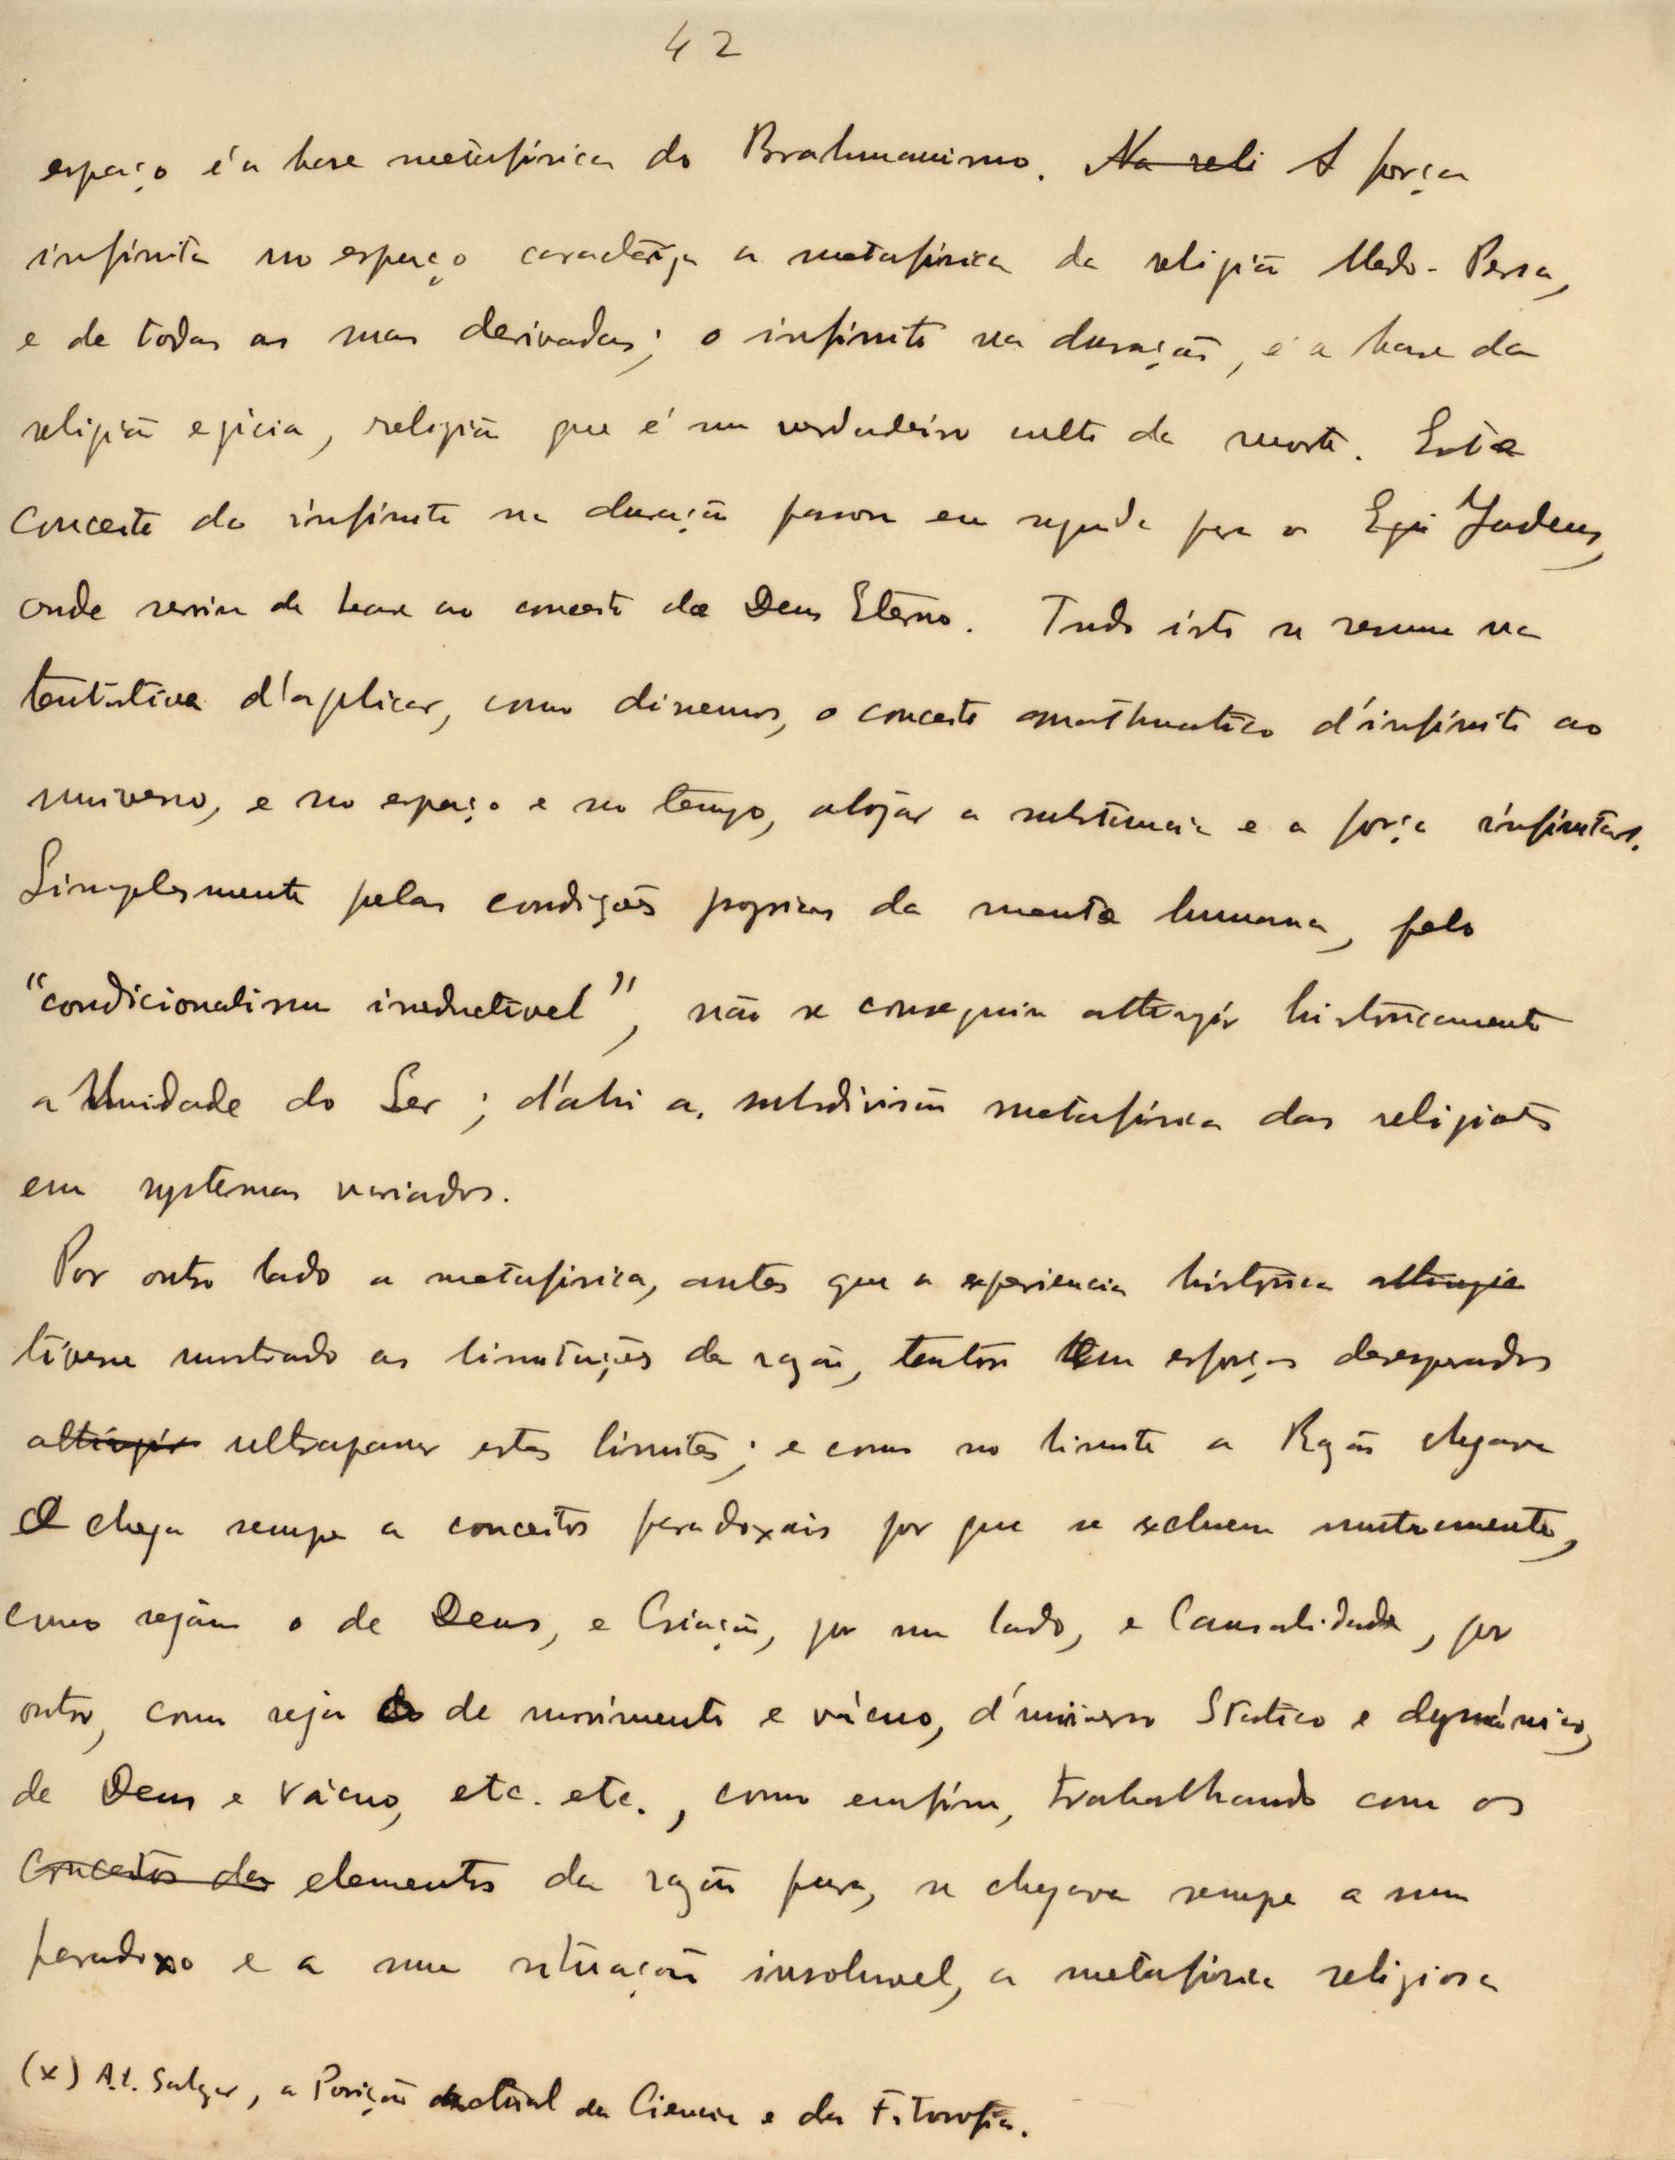 42
espaço é a base metafísica do Brahmanismo. Na reli A força
infinita no espaço caracterisa a metafísica da religião Medo-Persa,
e de todas as suas derivadas; o infinito na duração, é a base da
religião egícia, religião que é um verdadeiro culto da morte. Este
conceito do infinito na duração passou em seguida para os Egi Judeus,
onde serviu de base ao conceito de Deus Eterno. Tudo isto se resume na
tentativa d'aplicar, como dissemos, o conceito mathmatico d'infinito ao
universo, e no espaço e no tempo, alojar a substancia e a força infinitas.
Simplesmente pelas condições proprias da mente humana, pelo
"condicionalismo ireductivel", não se conseguiu attingir historicamente
a Unidade do Ser; d'ahi a subdivisão metafísica das religiões
em systemas variados.
Por outro lado a metafisica, antes que a experiencia historica attingia
tivesse mostrado as limitações da razão, tentou em esforços desesperados
attingir ultrapassar estes limites; e como no limite a Razão chegava
e chega sempre a conceitos paradoxais por que se excluem mutuamente,
como sejam o de Deus, e Criação, por um lado, e Causalidade, por
outro, como seja o de movimento e vácuo, d'universo Statico e dynámico,
de Deus e Vácuo, etc. etc., como emfim, trabalhando com os
conceitos das elementos da razão pura, se chegava sempre a um
paradoxo e a uma situação insoluvel, a metafísica religiosa
(x) A.L. Salazar, a Posição actual da Ciencia e da Filosofia.